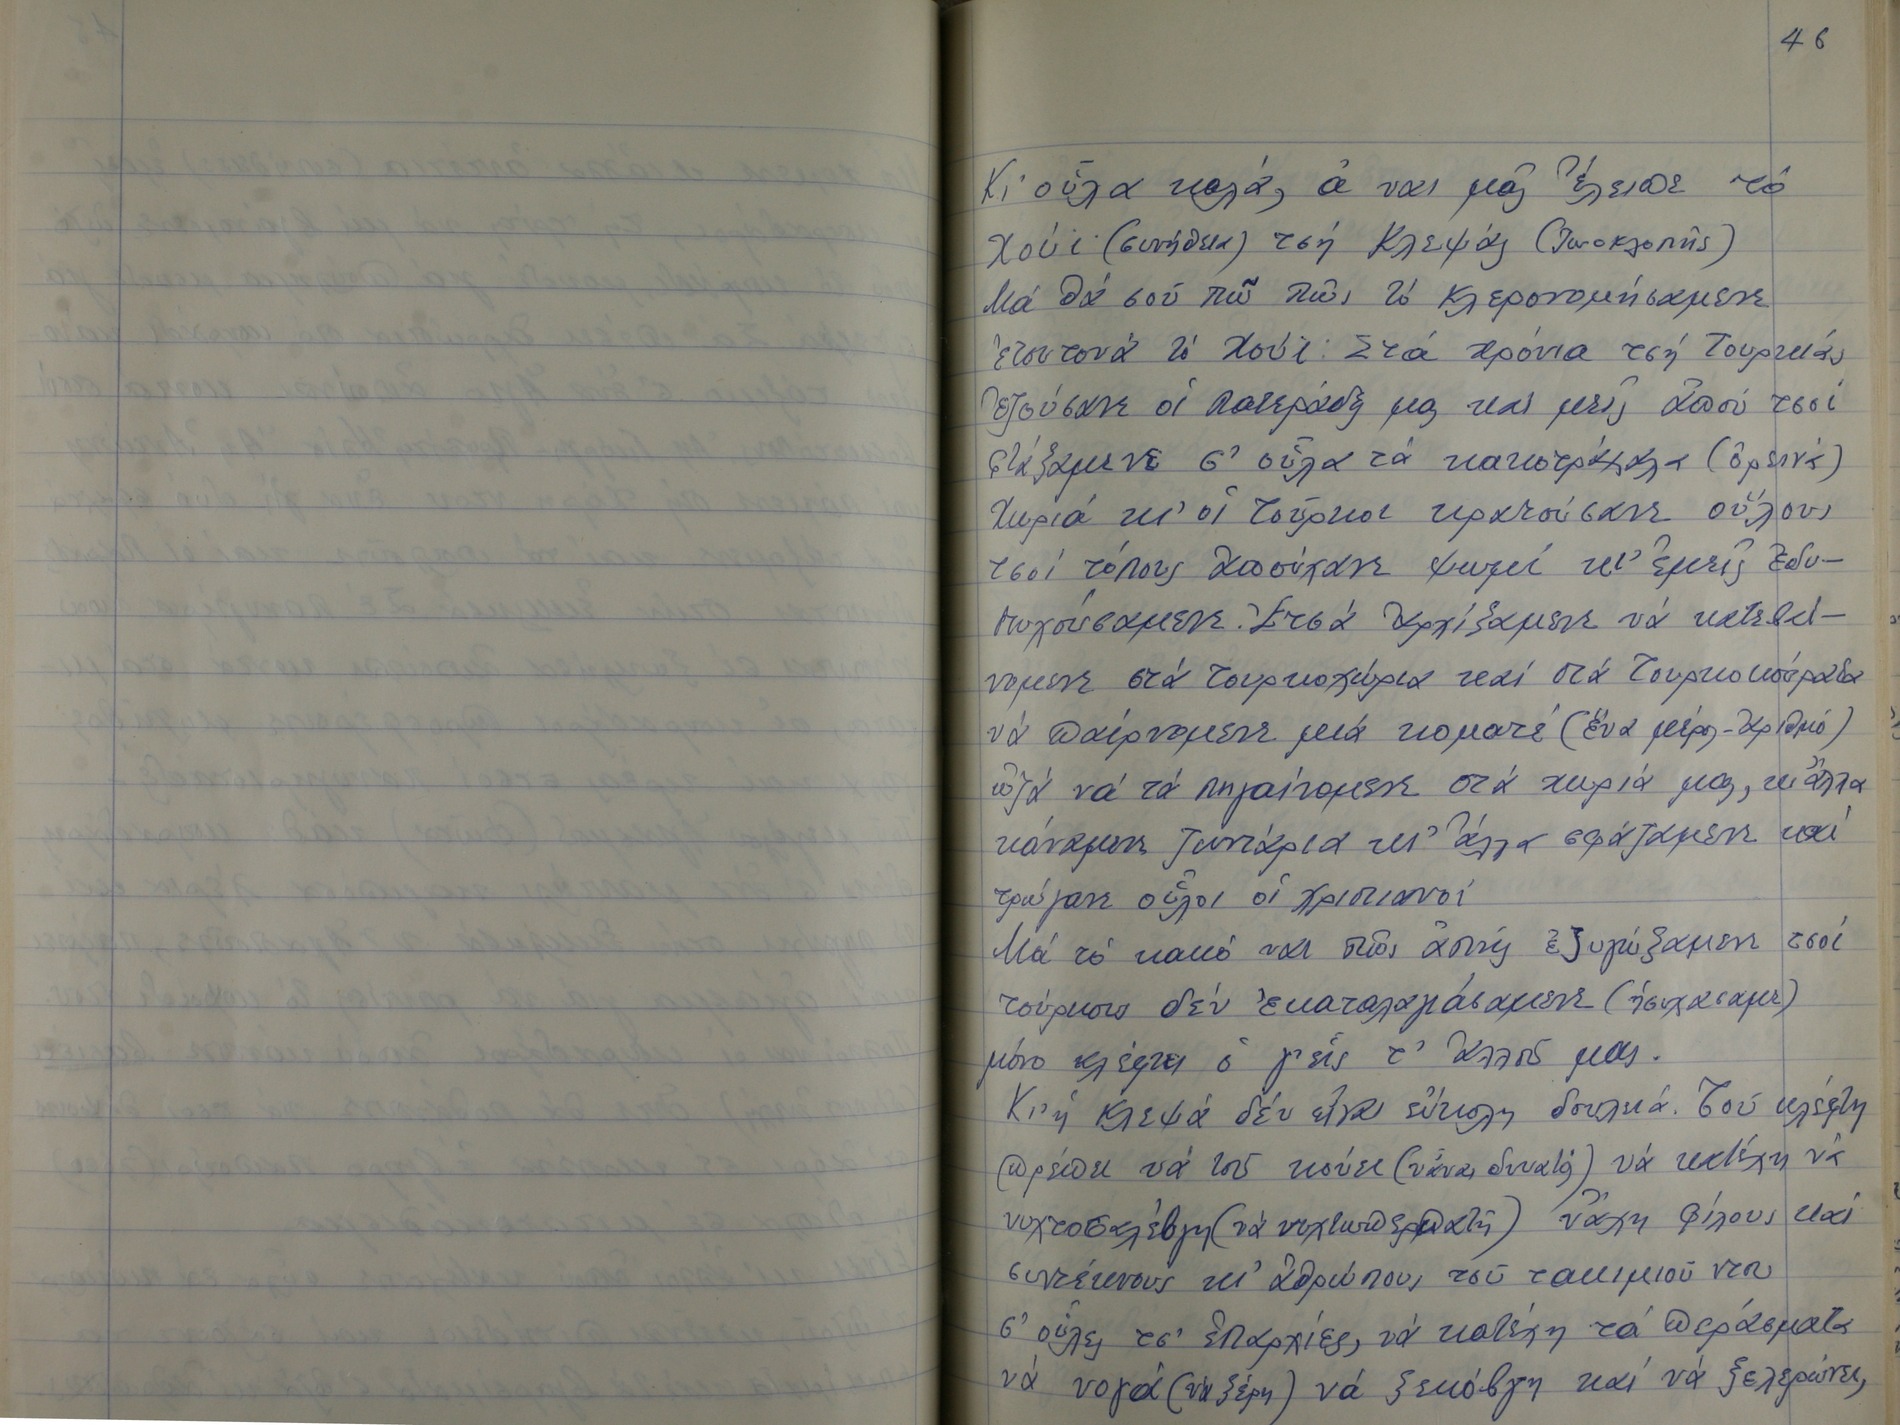 46
Κι' οὗλα καλά, ἀ ναι μᾶς ἔλειπε τό
χούι (συνήθεια) τσή κλεψάς (ζωοκλοπῆς)
Μά θά σοῦ πῶ πῶς τό κλερονομήσαμενε
ἐτουτονά τό χούι: Στά χρόνια τσή Τουρκιάς
ἐζούσανε οἱ πατεράδες μας και μεῖς ἀπού τσοί
φτάξαμενε σ' οὗλα τά κακοτράχαλα (ὀρεινά)
χωριά κι' οἱ Τοῦρκοι κρατούσανε οὕλους
τσοί τόπους ἀπούχανε ψωμί κι' ἐμεῖς ἐδυ-
στυχούσαμενε. Ἐτσά ἀρχίξαμενε νά κατεβαί-
νομενε στά τουρκοχώρια καί στά Τουρκοκούραδα
νά παίρνομενε μιά κοματέ (ἕνα μέρος-ἀριθμό)
ὠζά νά τά πηγαίνομενε στά χωριά μας, κι ἄλλα
κάναμενε ζωντάρια κι' ἄλλα σφάζαμενε καί
τρώγανε οὗλοι οἱ χριστιανοί
Μά τό κακό ναι πῶς ἀπής ἐζυγώξαμενε τσοί
τούρκους δέν ἐκαταλαγιάσαμενε (ἡσυχάσαμε)
μόνο κλέφτει ὁ γεἷς τ' ἀλλοῦ μας.
Κι' ἡ κλεψά δέν εἶναι εὔκολη δουλειά. Τοῦ κλέφτη
πρέπει νά τοῦ κούει (νἆναι δυνατός) νά κατέχη νά
νυχτοσαλέβγη (νά νυχτωπερπατῆ) νἄχη φίλους καί
συντέκνους κι' ἀθρώπους τοῦ τακιμιοῦ ντου
σ' οὗλες τσ' ἐπαρχίες, νά κατέχη τά περάσματα
νά νογά (νά ξέρη) νά ξεκόβγη καί νά ξελερώνει,